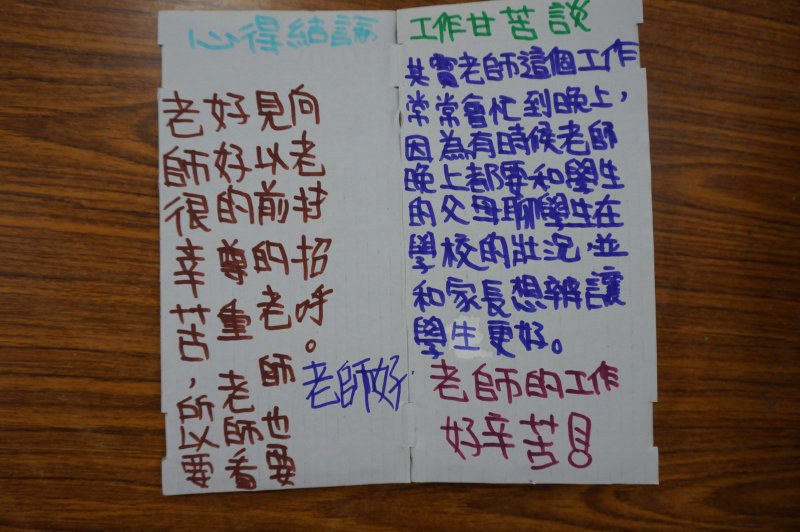 心得結論
老師很幸苦，所以要
好好的尊重老師看
見以前的老師也要
向老招呼。
老師好
工作甘苦談
其實老師這個工作
常常會忙到晚上，
因為有時候老師
晚上都要和學生
的父母聊學生在
學校的壯況，並
和家長想辨讓
學生更好。
老師的工作
好辛苦！